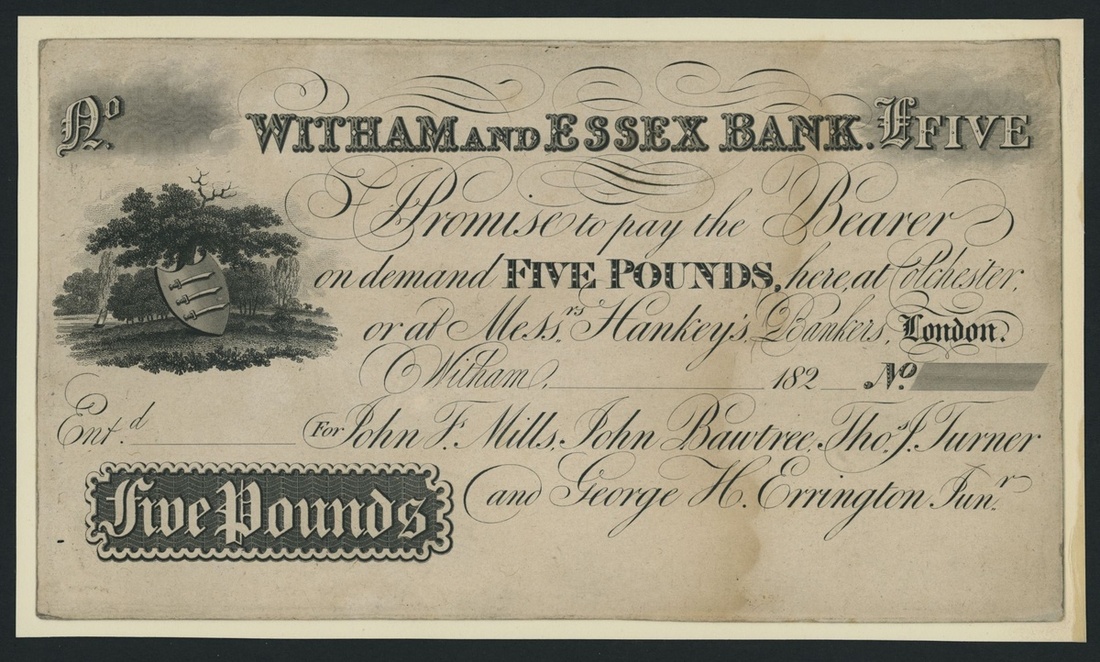 No. WITHAM AND ESSEX BANK. £FIVE
I Promise to pay the Bearer
on demand FIVE POUNDS, here, at Colchester,
or at Messrs. Hankey's, Bankers, London.
Witham, 182 No.
Entd. For John F. Mills, John Bawtree, Thos. J. Turner
Five Pounds and George H. Errington Junr.